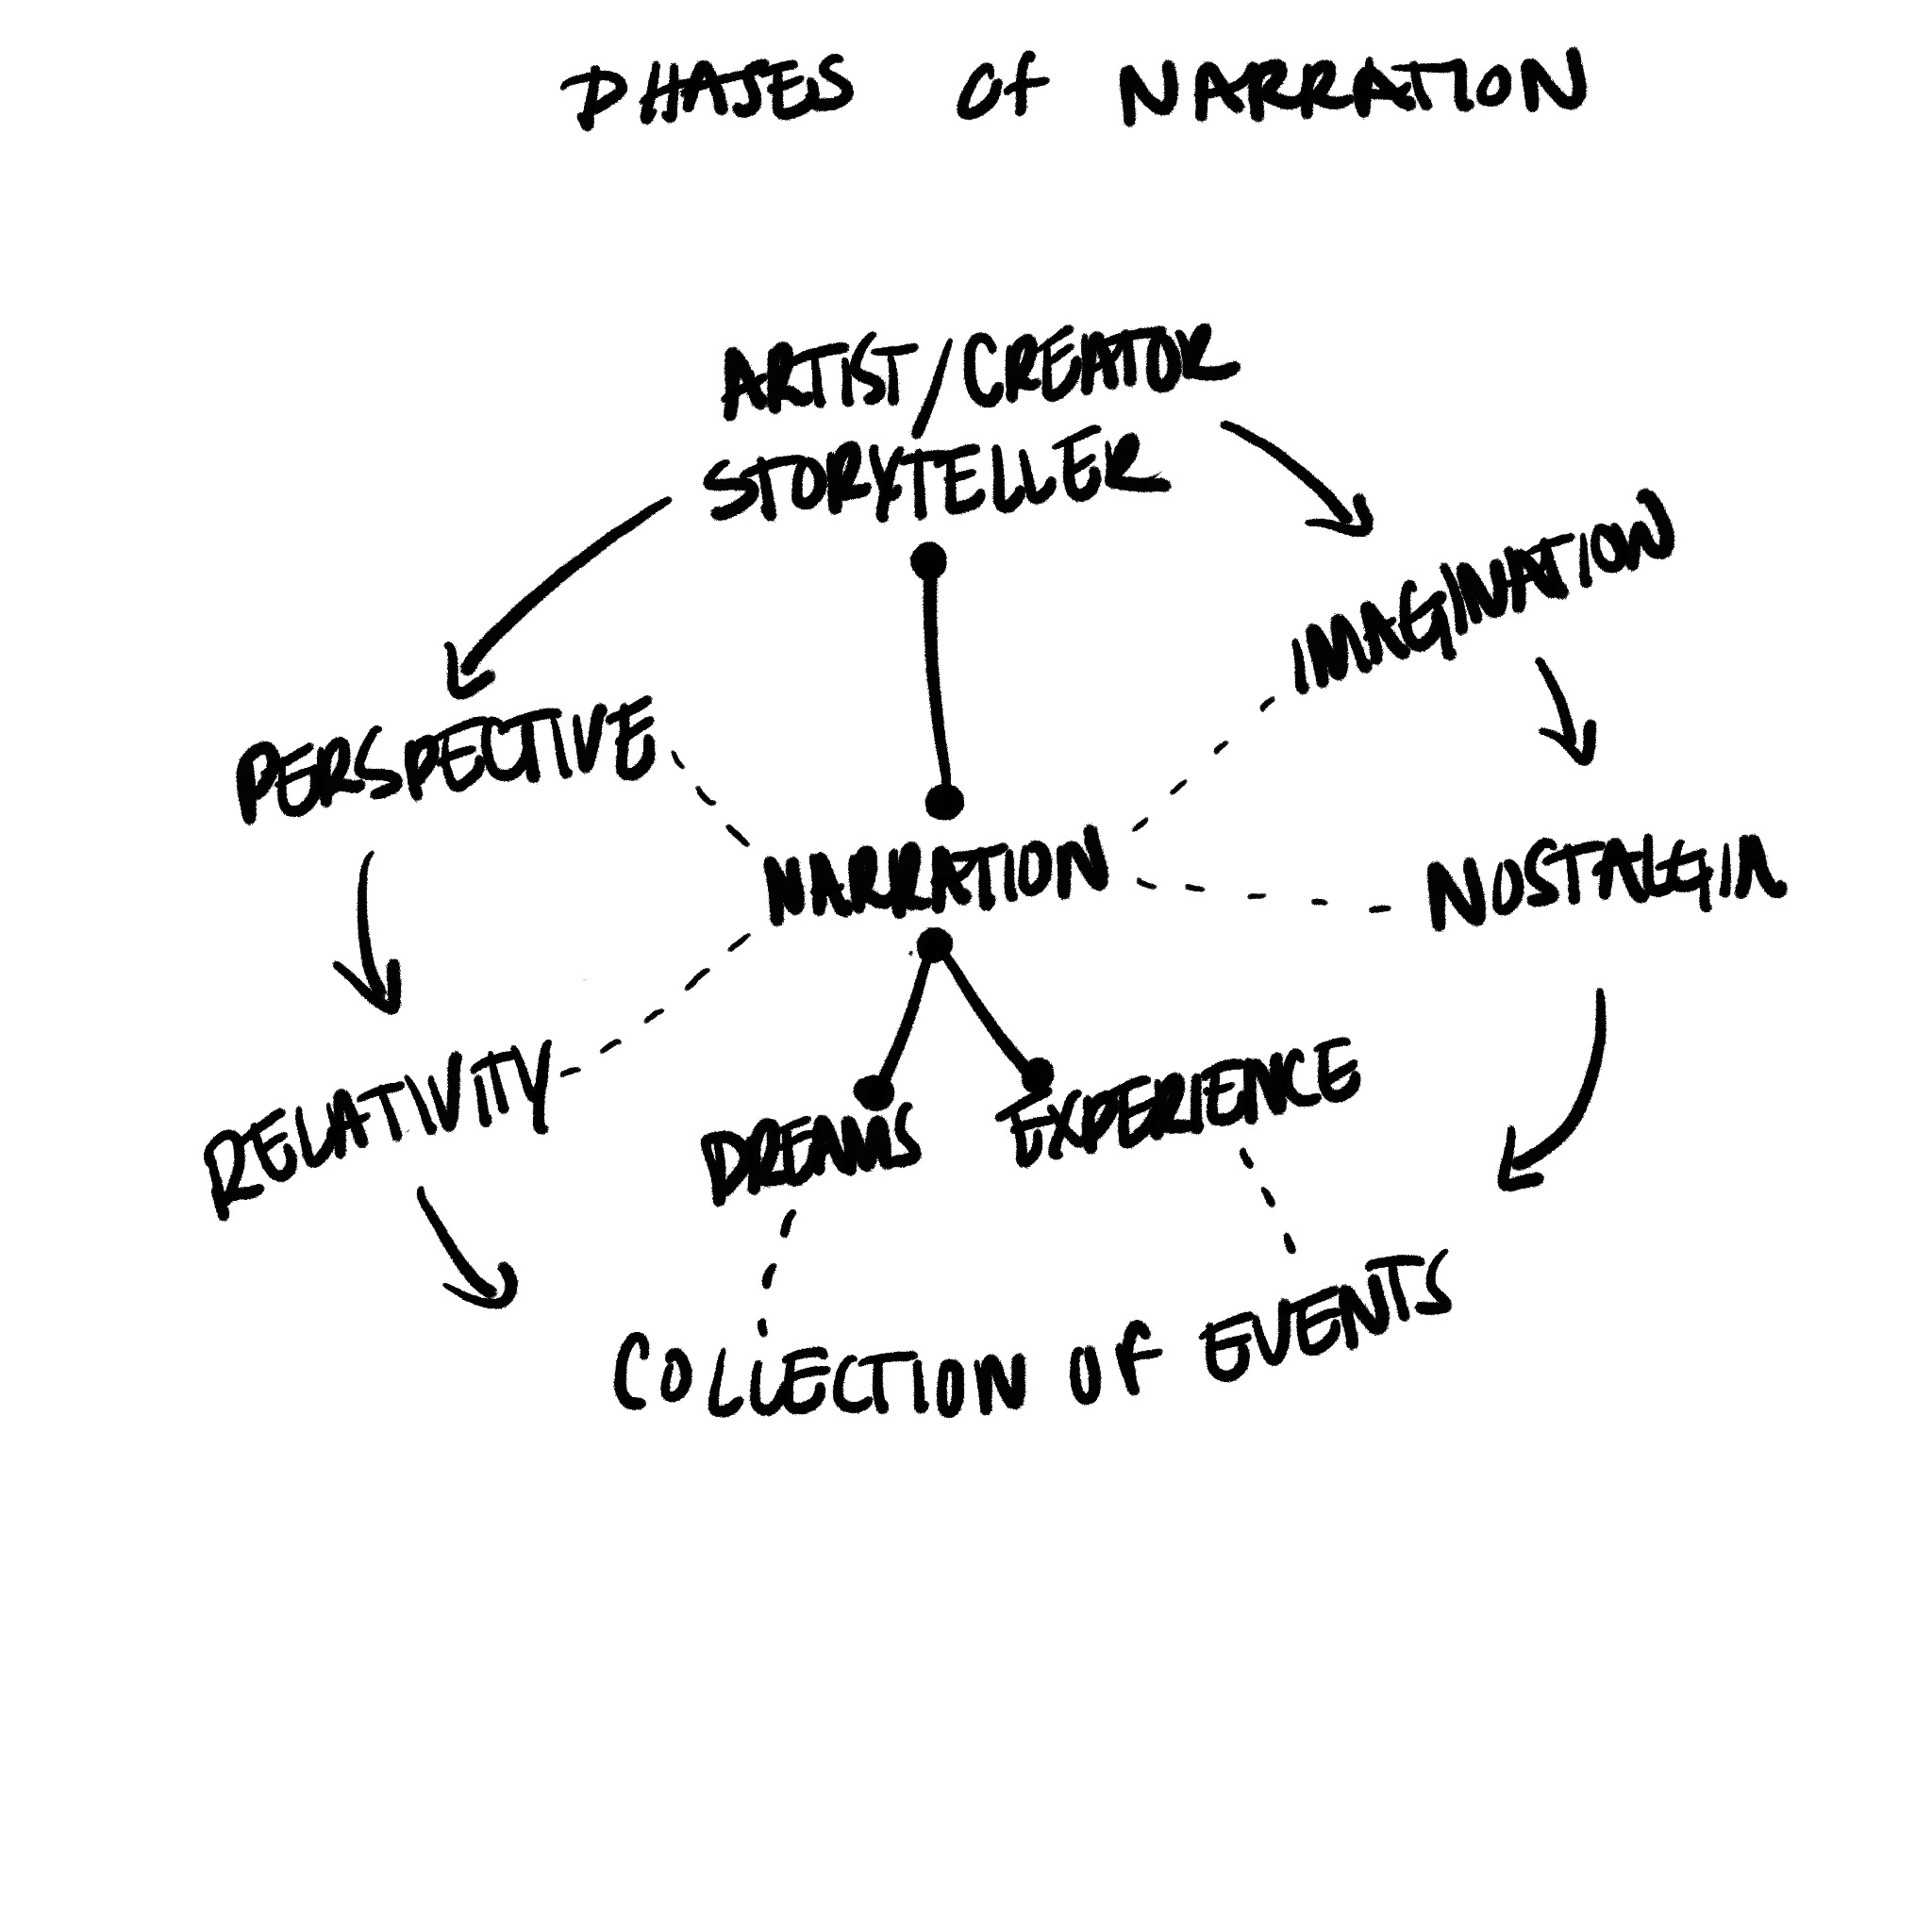 PHASES Of NARRATION
ARTIST/CREATOR
STORYTELLER
IMAGINATION
PERSPECTIVE
NARRATION
NOSTALGIA
RELATIVITY
DREAMS
EXPERIENCE
COLLECTION OF EVENTS